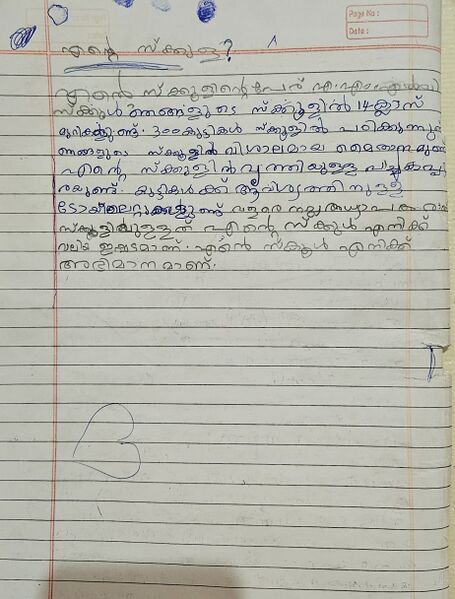 Page No :
Date :
എൻ്റെ സ്ക്കൂള്?
എൻ്റെ സ്ക്കൂളിൻ്റെ പേര് എ.എം.എൽ.പി
സ്ക്കൂൾ ഞങ്ങളുടെ സ്ക്കൂളിൽ 14 ക്ലാസ്
മുറികളുണ്ട്. 300 കുട്ടികൾ സ്ക്കൂളിൽ പഠിക്കുന്നുണ്ട്
ഞങ്ങളുടെ സ്ക്കൂളിൽ വിശാലമായ മൈതാനമുണ്ട്
എൻ്റെ സ്ക്കൂളിൽ വൃത്തിയുള്ള പാചകപ്പു
രയുണ്ട്. കുട്ടികൾക്ക് ആവശ്യത്തിനുള്ള
ടോയ്ലെറ്റുകളുണ്ട് വളരെ നല്ല അധ്യാപകരാണ്
സ്ക്കൂളിലുള്ളത് എൻ്റെ സ്ക്കൂൾ എനിക്ക്
വലിയ ഇഷ്ടമാണ്. എൻ്റെ സ്ക്കൂൾ എനിക്ക്
അഭിമാനമാണ്.